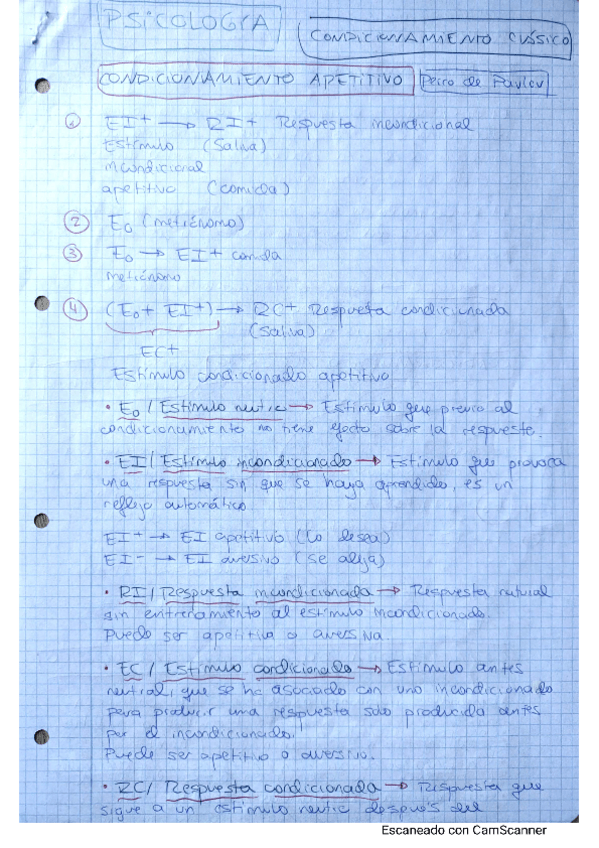 PSICOLOGÍA
CONDICIONAMIENTO CLÁSICO
CONDICIONAMIENTO APETITIVO Perro de Pavlov
1 EI+ → RI+ Respuesta incondicional
Estímulo (Saliva)
incondicional
apetitivo (comida)
2 E0 (metrónomo)
3 E0 → EI+ comida
metrónomo
4 (E0 + EI+) → RC+ Respuesta condicionada
(Saliva)
EC+
Estímulo condicionado apetitivo
• E0 / Estímulo neutro → Estímulo que previo al
condicionamiento no tiene efecto sobre la respuesta.
• EI / Estímulo incondicionado → Estímulo que provoca
una respuesta sin que se haya aprendido, es un
reflejo automático
EI+ → EI apetitivo (lo desea)
EI- → EI aversivo (se aleja)
• RI / Respuesta incondicionada → Respuesta natural
sin entrenamiento al estímulo incondicionado.
Puede ser apetitiva o aversiva
• EC / Estímulo condicionado → Estímulo antes
neutral, que se ha asociado con uno incondicionado
para producir una respuesta solo producida antes
por el incondicionado.
Puede ser apetitivo o aversivo.
• RC / Respuesta condicionada → Respuesta que
sigue a un estímulo neutro después del
Escaneado con CamScanner